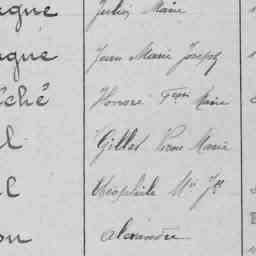 agne Julien Marie
agne Jean Marie Joseph
iché Honoré Marie
l Gillet Pierre Marie
l Théophile Mie Jph
on Alexandre